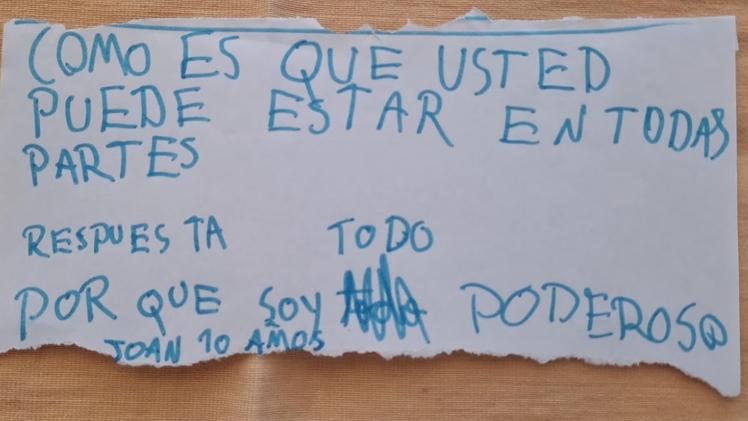 COMO ES QUE USTED
PUEDE ESTAR EN TODAS
PARTES
RESPUESTA TODO
POR QUE SOY PODEROSO
JOAN 10 AÑOS